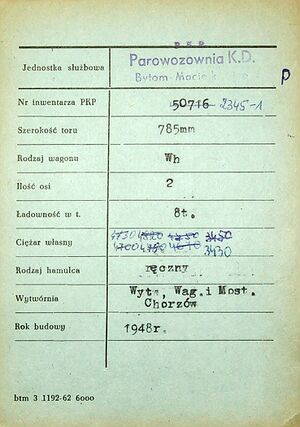 P.K.P.
Jednostka służbowa Parowozownia K.D.
Bytom
p
Nr inwentarza PKP 50716 2345-1
Szerokość toru 785mm
Rodzaj wagonu Wh
Ilość osi 2
Ładowność w t. 8t.
Ciężar własny 4730 4820 4250 3450
4700 4750 4670 3430
Rodzaj hamulca ręczny
Wytwórnia Wytw, Wag.i Most.
Chorzów
Rok budowy 1948r.
btm 3 1192-62 6000